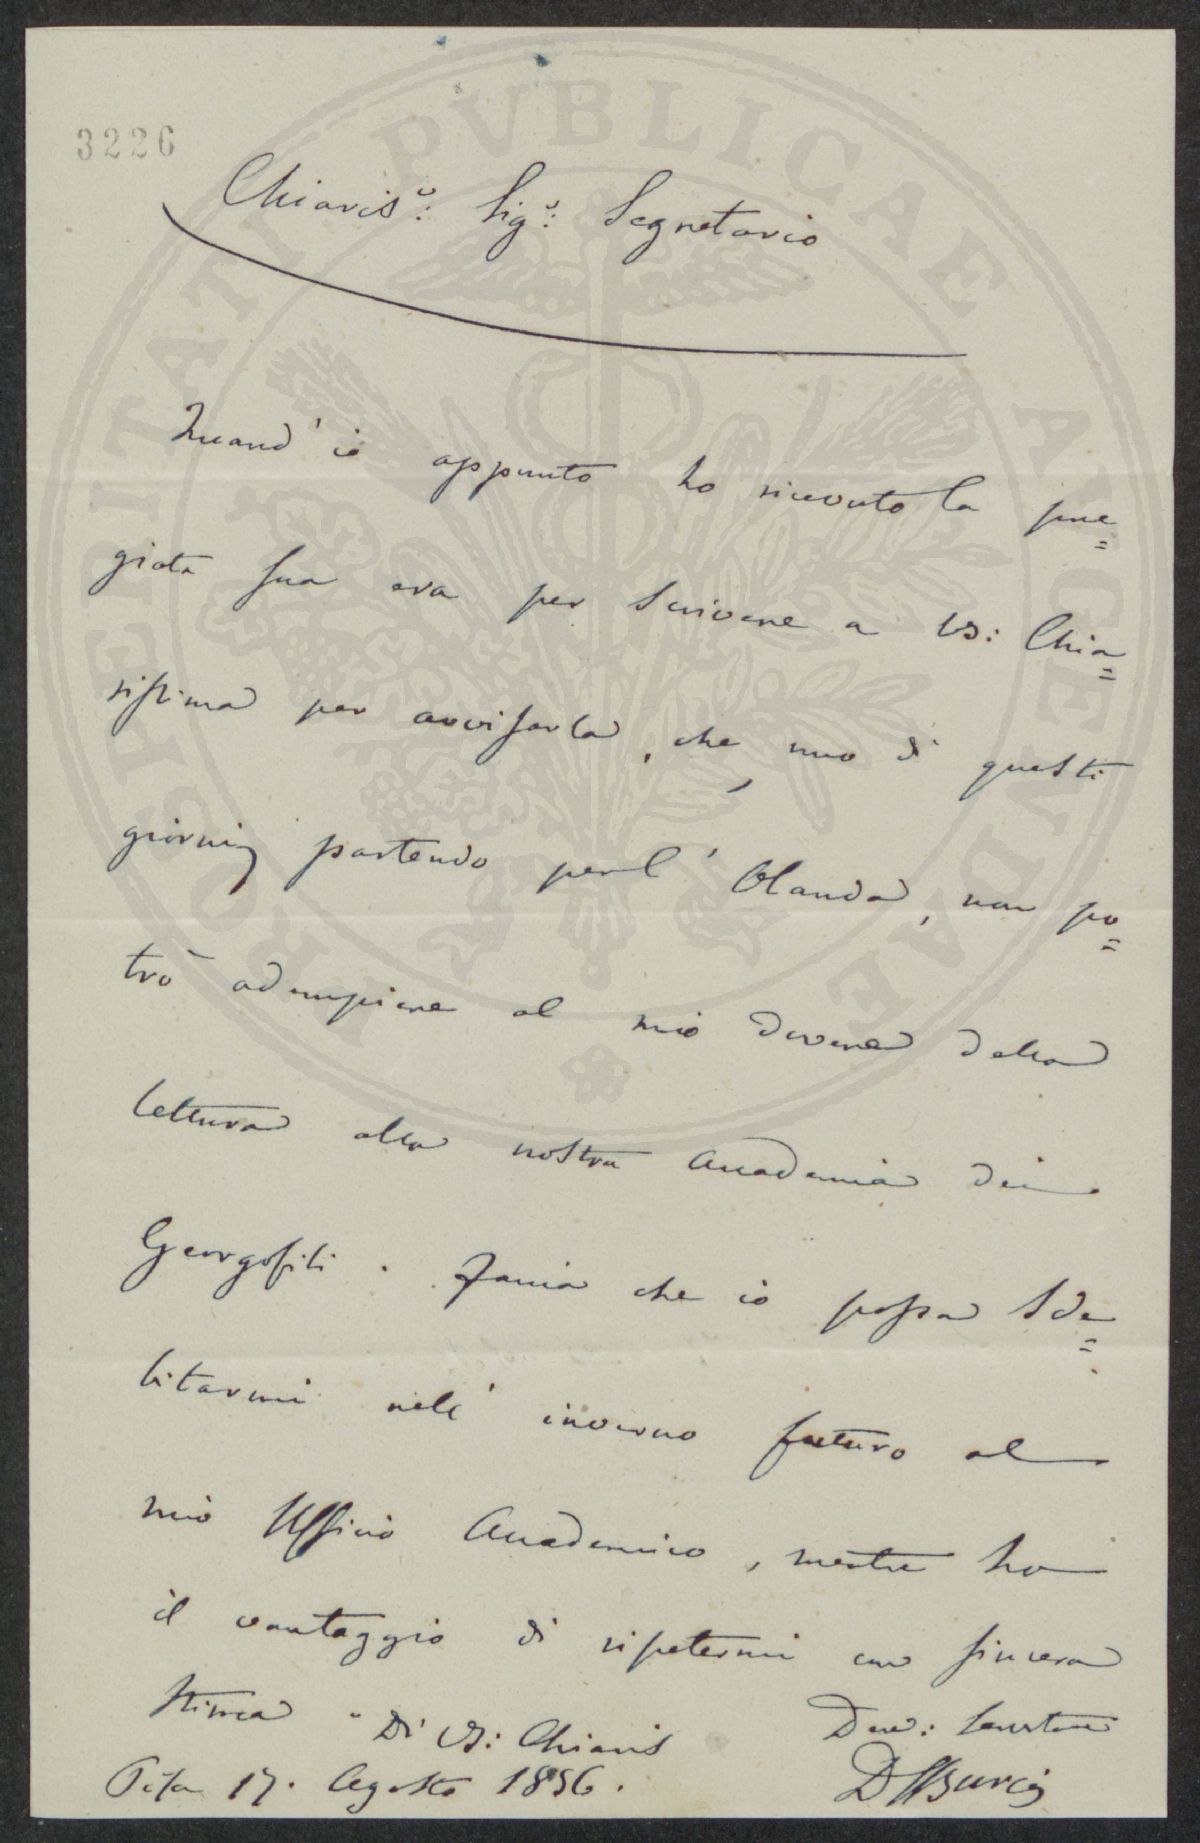 3226
Chiaris.º: Sig.º: Segretario
Quand' io appunto ho ricevuto la pre=
giata sua era per scrivere a VS: Chia=
rissima per avvisarla, che, uno di questi
giorni, partendo per l' Olanda, non po=
trò adempiere al mio dovere della
lettura alla nostra Accademia dei
Georgofili. Faccia che io possa sde=
bitarmi nell' inverno futuro al
mio Ufficio Accademico, mentre ho
il vantaggio di ripetermi con sincera
stima
Di VS: Chiaris
Dev: Servitore
Pisa 17. Agosto 1856.
PROSPERITATI PVBLICAE AVGENDAE